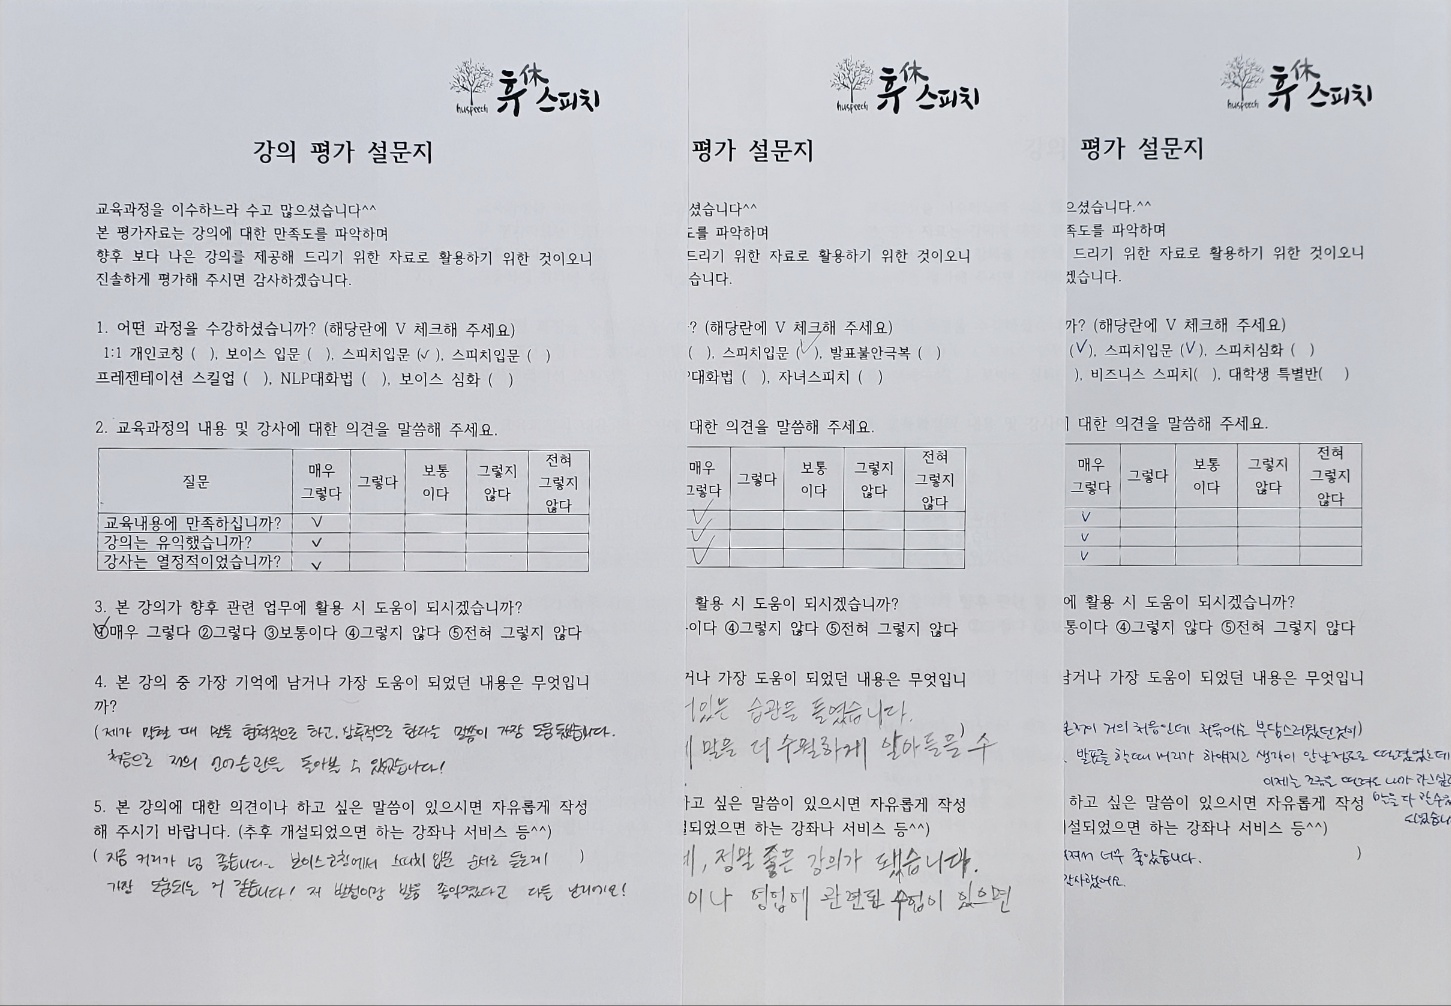 huspeech 휴休 스피치
강의 평가 설문지
교육과정을 이수하느라 수고 많으셨습니다^^
본 평가자료는 강의에 대한 만족도를 파악하며
향후 보다 나은 강의를 제공해 드리기 위한 자료로 활용하기 위한 것이오니
진솔하게 평가해 주시면 감사하겠습니다.
1. 어떤 과정을 수강하셨습니까? (해당란에 V 체크해 주세요)
1:1 개인코칭 ( ), 보이스 입문 ( ), 스피치입문 (✓), 스피치입문 ( )
프레젠테이션 스킬업 ( ), NLP대화법 ( ), 보이스 심화 ( )
2. 교육과정의 내용 및 강사에 대한 의견을 말씀해 주세요.
질문 매우 그렇다 그렇다 보통이다 그렇지 않다 전혀 그렇지 않다
교육내용에 만족하십니까? V
강의는 유익했습니까? V
강사는 열정적이었습니까? V
3. 본 강의가 향후 관련 업무에 활용 시 도움이 되시겠습니까?
①매우 그렇다 ②그렇다 ③보통이다 ④그렇지 않다 ⑤전혀 그렇지 않다
4. 본 강의 중 가장 기억에 남거나 가장 도움이 되었던 내용은 무엇입니
까?
(제가 말할 때 말을 협력적으로 하고, 말씀이 가장
처음으로 저의 언어습관을 돌아볼 수 있었습니다!
5. 본 강의에 대한 의견이나 하고 싶은 말씀이 있으시면 자유롭게 작성
해 주시기 바랍니다. (추후 개설되었으면 하는 강좌나 서비스 등^^)
( 지금 커리가 넘 좋습니다. 보이스코칭에서 스피치 입문 순서로 듣는게 )
가장 도움되는 거 같습니다! 저 발성이랑 발음 좋아졌다고 다들 난리에요!
huspeech 휴休 스피치
평가 설문지
셨습니다^^
도를 파악하며
드리기 위한 자료로 활용하기 위한 것이오니
습니다.
? (해당란에 V 체크해 주세요)
( ), 스피치입문 (✓), 발표불안극복 ( )
대화법 ( ), 자녀스피치 ( )
대한 의견을 말씀해 주세요.
매우 그렇다 그렇다 보통이다 그렇지 않다 전혀 그렇지 않다
V
V
V
활용 시 도움이 되시겠습니까?
이다 ④그렇지 않다 ⑤전혀 그렇지 않다
거나 가장 도움이 되었던 내용은 무엇입니
습관을 들였습니다.
말을 더 수월하게 알아들을 수
하고 싶은 말씀이 있으시면 자유롭게 작성
되었으면 하는 강좌나 서비스 등^^)
, 정말 좋은 강의가 됐습니다.
이나 영업에 관련된 수업이 있으면
huspeech 휴休 스피치
평가 설문지
으셨습니다.^^
족도를 파악하며
드리기 위한 자료로 활용하기 위한 것이오니
겠습니다.
까? (해당란에 V 체크해 주세요)
(V), 스피치입문 (V), 스피치심화 ( )
), 비즈니스 스피치( ), 대학생 특별반( )
대한 의견을 말씀해 주세요.
매우 그렇다 그렇다 보통이다 그렇지 않다 전혀 그렇지 않다
V
V
V
에 활용 시 도움이 되시겠습니까?
통이다 ④그렇지 않다 ⑤전혀 그렇지 않다
남거나 가장 도움이 되었던 내용은 무엇입니
거의 처음인데 처음에는 부담스러웠던것이)
발표를 할때 머리가 하얘지고 생각이 안날정도로 떨렸었는데
이제는 조금은
하고 싶은 말씀이 있으시면 자유롭게 작성
개설되었으면 하는 강좌나 서비스 등^^)
너무 좋았습니다. )
감사했어요.